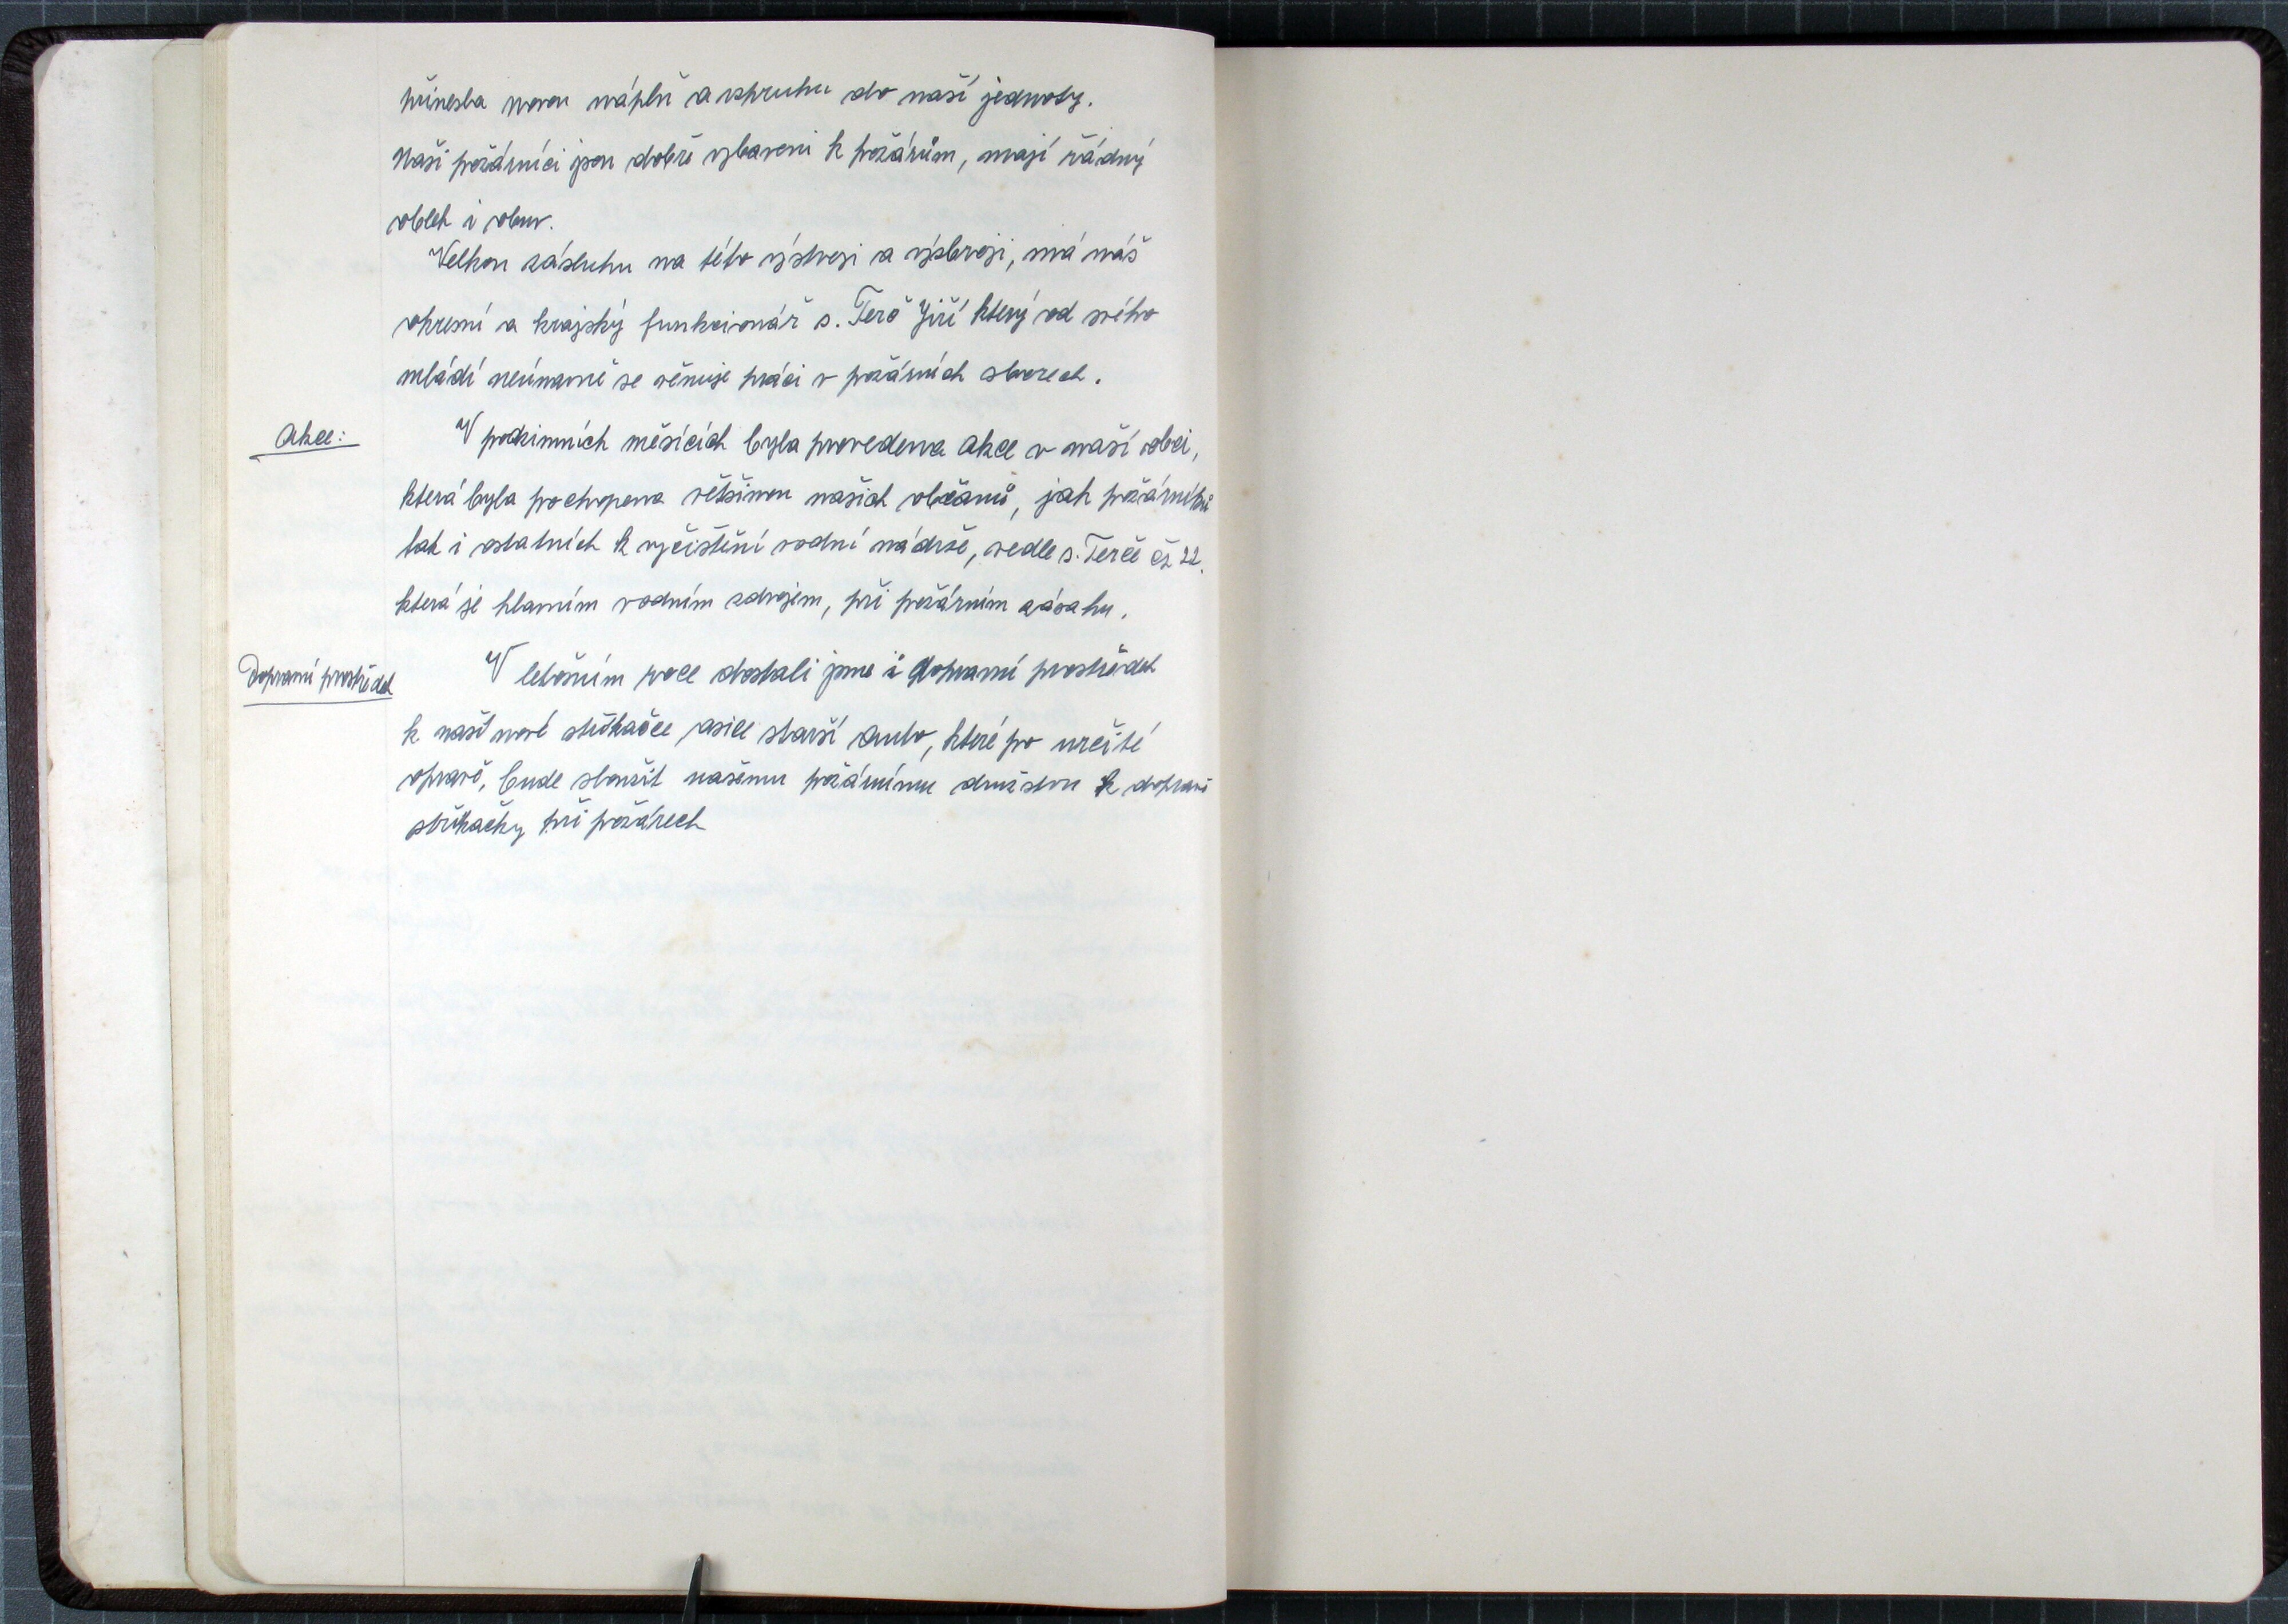 přinesla novou náplň a vzpruhu do naší jednoty.
Naši požárníci jsou dobře vybaveni k požárům, mají řádný
oblek i obuv.
Velkou zásluhu na této výstroji a výzbroji, má náš
okresní a krajský funkcionář s. Terč Jiří který od svého
mládí neúnavně se věnuje práci v požárních sborech.
Akce:
V podzimních měsících byla provedena akce v naší obci,
která byla pochopena většinou našich občanů, jak požárníků
tak i ostatních k vyčištění vodní nádrže, vedle s. Terče čp 22.
která je hlavním vodním zdrojem, při požárním zásahu.
Dopravní prostředek
V letošním roce dostali jsme i dopravní prostředek
k naší nové stříkačce asice starší auto, které po určité
opravě, bude sloužit našemu požárnímu družstvu k dopravě
stříkačky při požárech